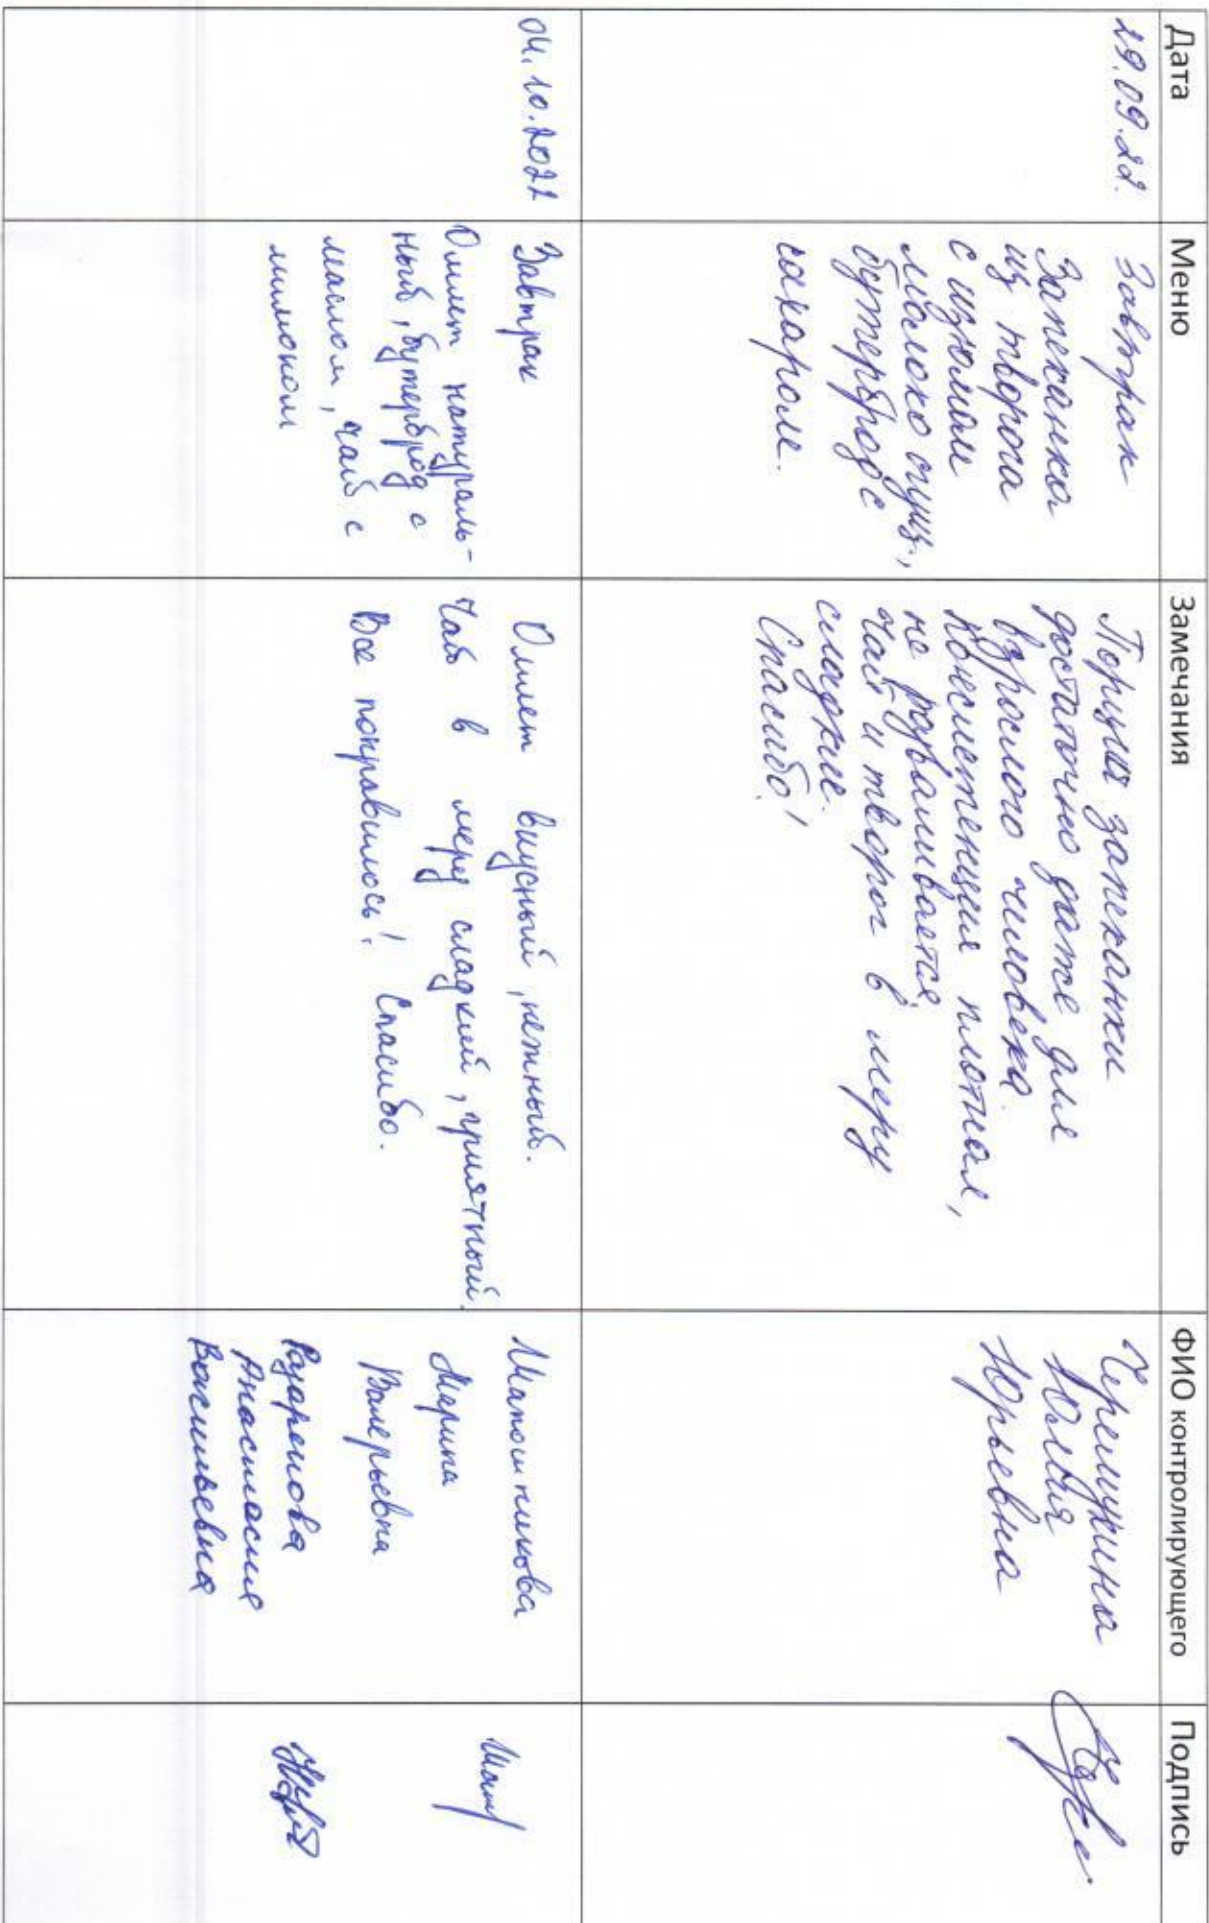 Дата Меню Замечания ФИО контролирующего Подпись
29.09.22.
Завтрак
Запеканка
из творога
с изюмом
молоко сгущ.,
бутерброд с
сахаром.
Порция запеканки
достаточно даже для
взрослого человека.
Консистенция плотная,
не разваливается,
чай и творог в меру
сладкие.
Спасибо!
Черемухина
Юлия
Юрьевна
04.10.2022
Завтрак
Омлет натураль-
ный, бутерброд с
маслом, чай с
лимоном
Омлет вкусный, нежный.
Чай в меру сладкий, приятный.
Все понравилось! Спасибо.
Шапошникова
Марина
Валерьевна
Анастасия
Васильевна